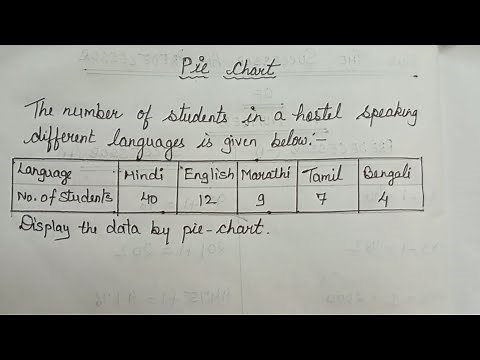 Pie Chart
The number of students in a hostel speaking
different languages is given below:-
Language Hindi English Marathi Tamil Bengali
No. of Students 40 12 9 7 4
Display the data by pie-chart.